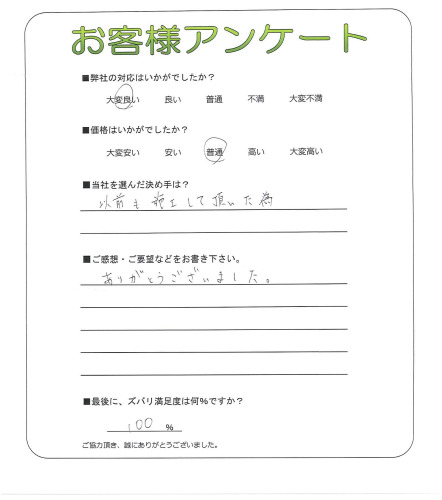 お客様アンケート
■弊社の対応はいかがでしたか？
大変良い 良い 普通 不満 大変不満
■価格はいかがでしたか？
大変安い 安い 普通 高い 大変高い
■当社を選んだ決め手は？
以前も施工して頂いた為
■ご感想・ご要望などをお書き下さい。
ありがとうございました。
■最後に、ズバリ満足度は何％ですか？
100 %
ご協力頂き、誠にありがとうございました。